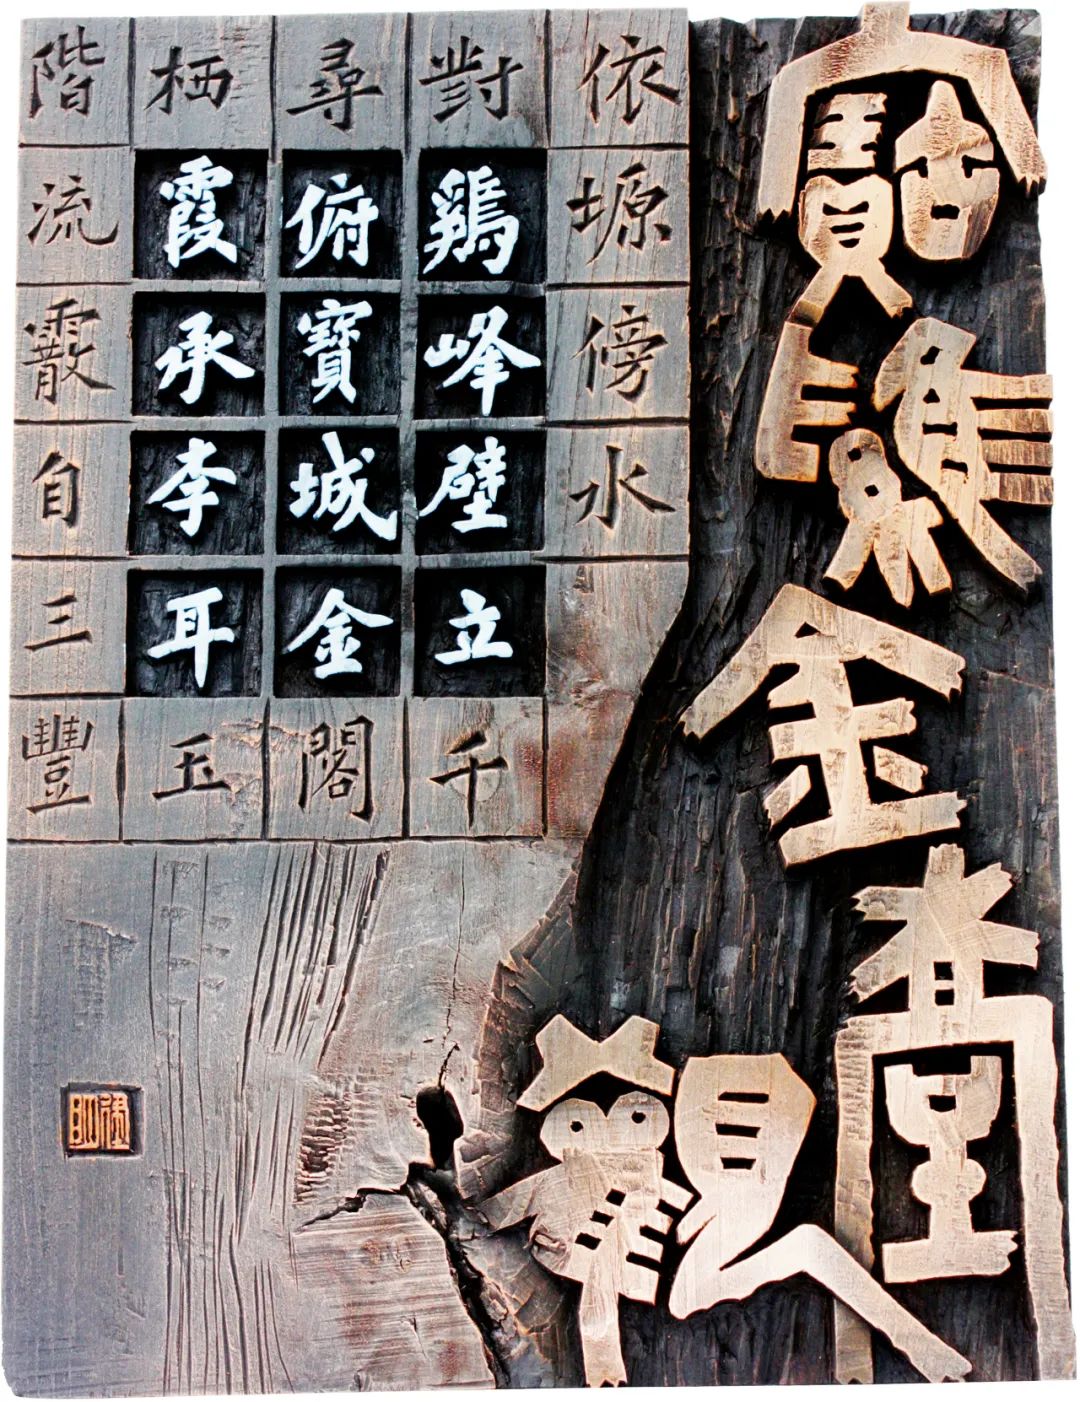 寶
金
觀
依塬傍水
對鶏峰壁立千
尋俯寶城金閣
栖霞承李耳玉
階流霰自三豐